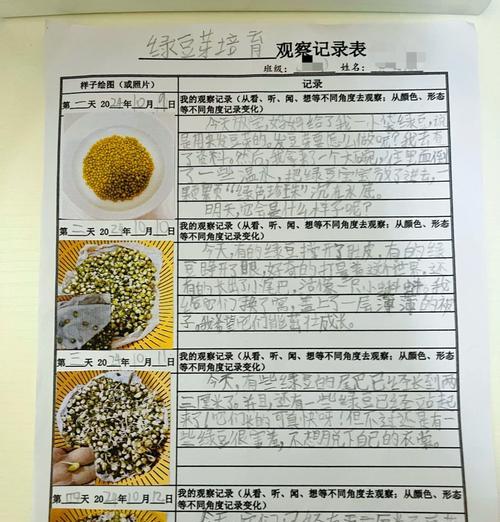 绿豆芽培育 观察记录表
班级: 姓名:
样子绘图（或照片） 记录
第一天 2024年10月9日
我的观察记录（从看、听、闻、想等不同角度去观察；从颜色、形态等不同角度记录变化）
今天放学，妈妈给了我一小袋绿豆，说
是用来发豆芽的。发豆芽要怎么做呢？我去看了
资料。然后，我拿来了一个大碗，往里面倒
了一些温水，把绿豆宝宝放了进去。一
颗颗“绿色珍珠”沉在水底。
明天，还会是什么样子呢？
第二天 2024年10月10日
我的观察记录（从看、听、闻、想等不同角度去观察；从颜色、形态等不同角度记录变化）
今天，有的绿豆撑开了肚皮，有的绿
豆睁开了眼，好奇的打量着这个世界，还
有的长出了小尾巴，活像一只小蝌蚪。我
给它们换了窝，盖上了一层薄薄的被
子。我希望它们能茁壮成长。
第三天 2024年10月11日
我的观察记录（从看、听、闻、想等不同角度去观察；从颜色、形态等不同角度记录变化）
今天，有些绿豆的尾巴已经长到两
三厘米了，并且还有一些绿豆已经站起
来了！它们长的可真快呀！但不过还是有一
些绿豆很害羞，不想脱下自己的衣裳。
第四天 2024年10月12日
我的观察记录（从看、听、闻、想等不同角度去观察；从颜色、形态等不同角度记录变化）